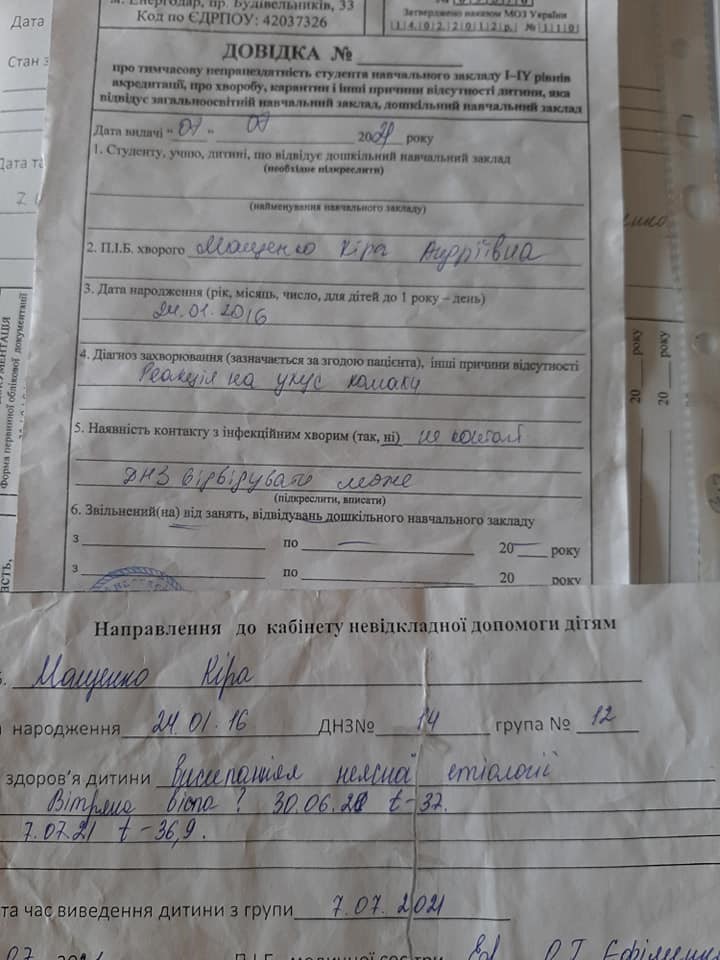 м. Енергодар, пр. Будівельників, 33
Код по ЄДРПОУ: 42037326
Затверджено наказом МОЗ України
14.02.2012р. №110
ДОВІДКА № 
про тимчасову непрацездатність студента навчального закладу І–ІУ рівнів
акредитації, про хворобу, карантин і інші причини відсутності дитини, яка
відвідує загальноосвітній навчальний заклад, дошкільний навчальний заклад
Дата видачі " 07 " 07 2021 року
1. Студенту, учню, дитині, що відвідує дошкільний навчальний заклад
(необхідне підкреслити)
(найменування навчального закладу)
2. П.І.Б. хворого Мащенко Кіра Андріївна
3. Дата народження (рік, місяць, число, для дітей до 1 року – день)
24.01.2016
4. Діагноз захворювання (зазначається за згодою пацієнта), інші причини відсутності
Реакція на укус комахи
5. Наявність контакту з інфекційним хворим (так, ні) не контакт
ДНЗ відвідувати може
(підкреслити, вписати)
6. Звільнений(на) від занять, відвідувань дошкільного навчального закладу
з по 20 року
з по 20 року
Дата
Стан з
Дата та
Форма первинної облікової документації
20 року
20 року
Направлення до кабінету невідкладної допомоги дітям
Мащенко Кіра
народження 24.01.16 ДНЗ№ 14 група № 12
здоров'я дитини висипання неясної етіології
Вітряна віспа? 30.06.21 t-37.
7.07.21 t-36,9.
та час виведення дитини з групи 7.07.2021